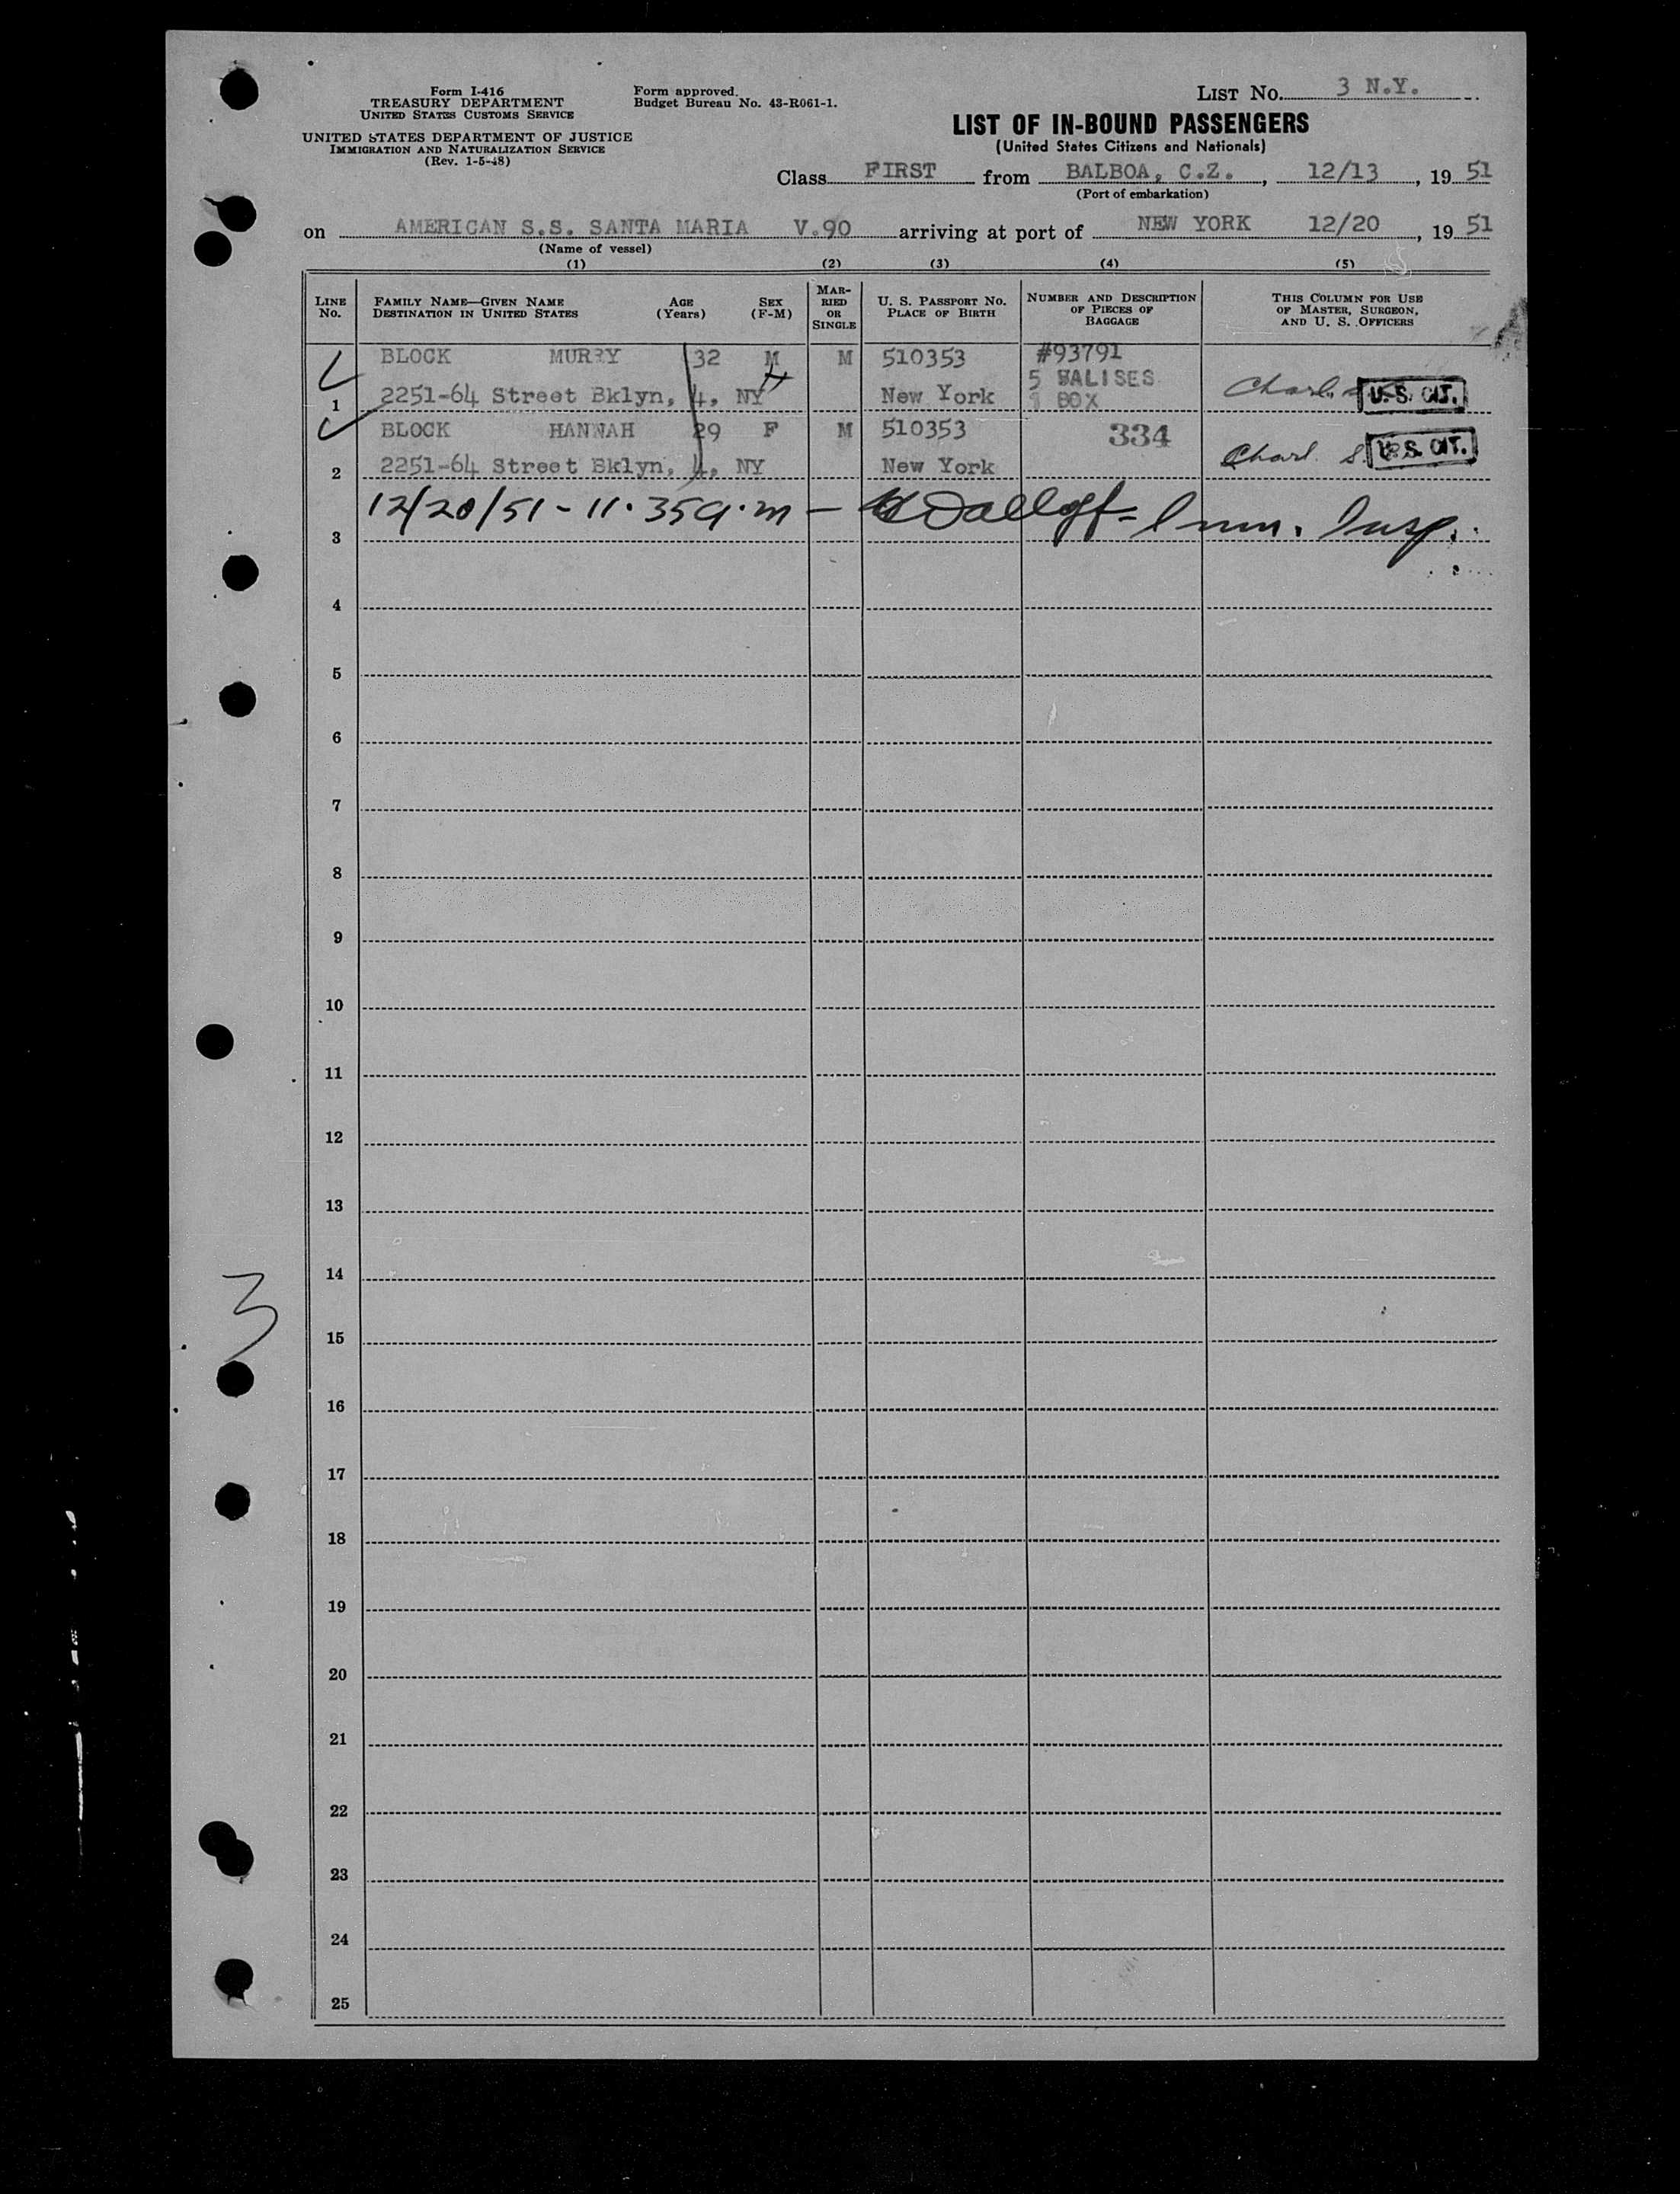 Form I-416
TREASURY DEPARTMENT
UNITED STATES CUSTOMS SERVICE
UNITED STATES DEPARTMENT OF JUSTICE
IMMIGRATION AND NATURALIZATION SERVICE
(Rev. 1-5-48)
Form approved.
Budget Bureau No. 43-R061-1.
LIST No. 3 N.Y.
LIST OF IN-BOUND PASSENGERS
(United States Citizens and Nationals)
Class FIRST from BALBOA, C.Z., 12/13, 19 51
(Port of embarkation)
on AMERICAN S.S. SANTA MARIA V.90 arriving at port of NEW YORK 12/20, 19 51
(Name of vessel)
(1) (2) (3) (4) (5)
LINE No.
FAMILY NAME—GIVEN NAME
DESTINATION IN UNITED STATES
AGE (Years)
SEX (F-M)
MARRIED OR SINGLE
U. S. PASSPORT NO.
PLACE OF BIRTH
NUMBER AND DESCRIPTION OF PIECES OF BAGGAGE
THIS COLUMN FOR USE OF MASTER, SURGEON, AND U. S. OFFICERS
BLOCK MURRY 32 M M 510353 #93791
5 VALISES
1 2251-64 Street Bklyn, 4, NY New York 1 BOX U.S. CIT.
BLOCK HANNAH 29 F M 510353 334
2 2251-64 Street Bklyn, 4, NY New York U.S. CIT.
3 12/20/51 - 11.35 a.m - Imm. Insp.
4
5
6
7
8
9
10
11
12
13
14
15
16
17
18
19
20
21
22
23
24
25
3